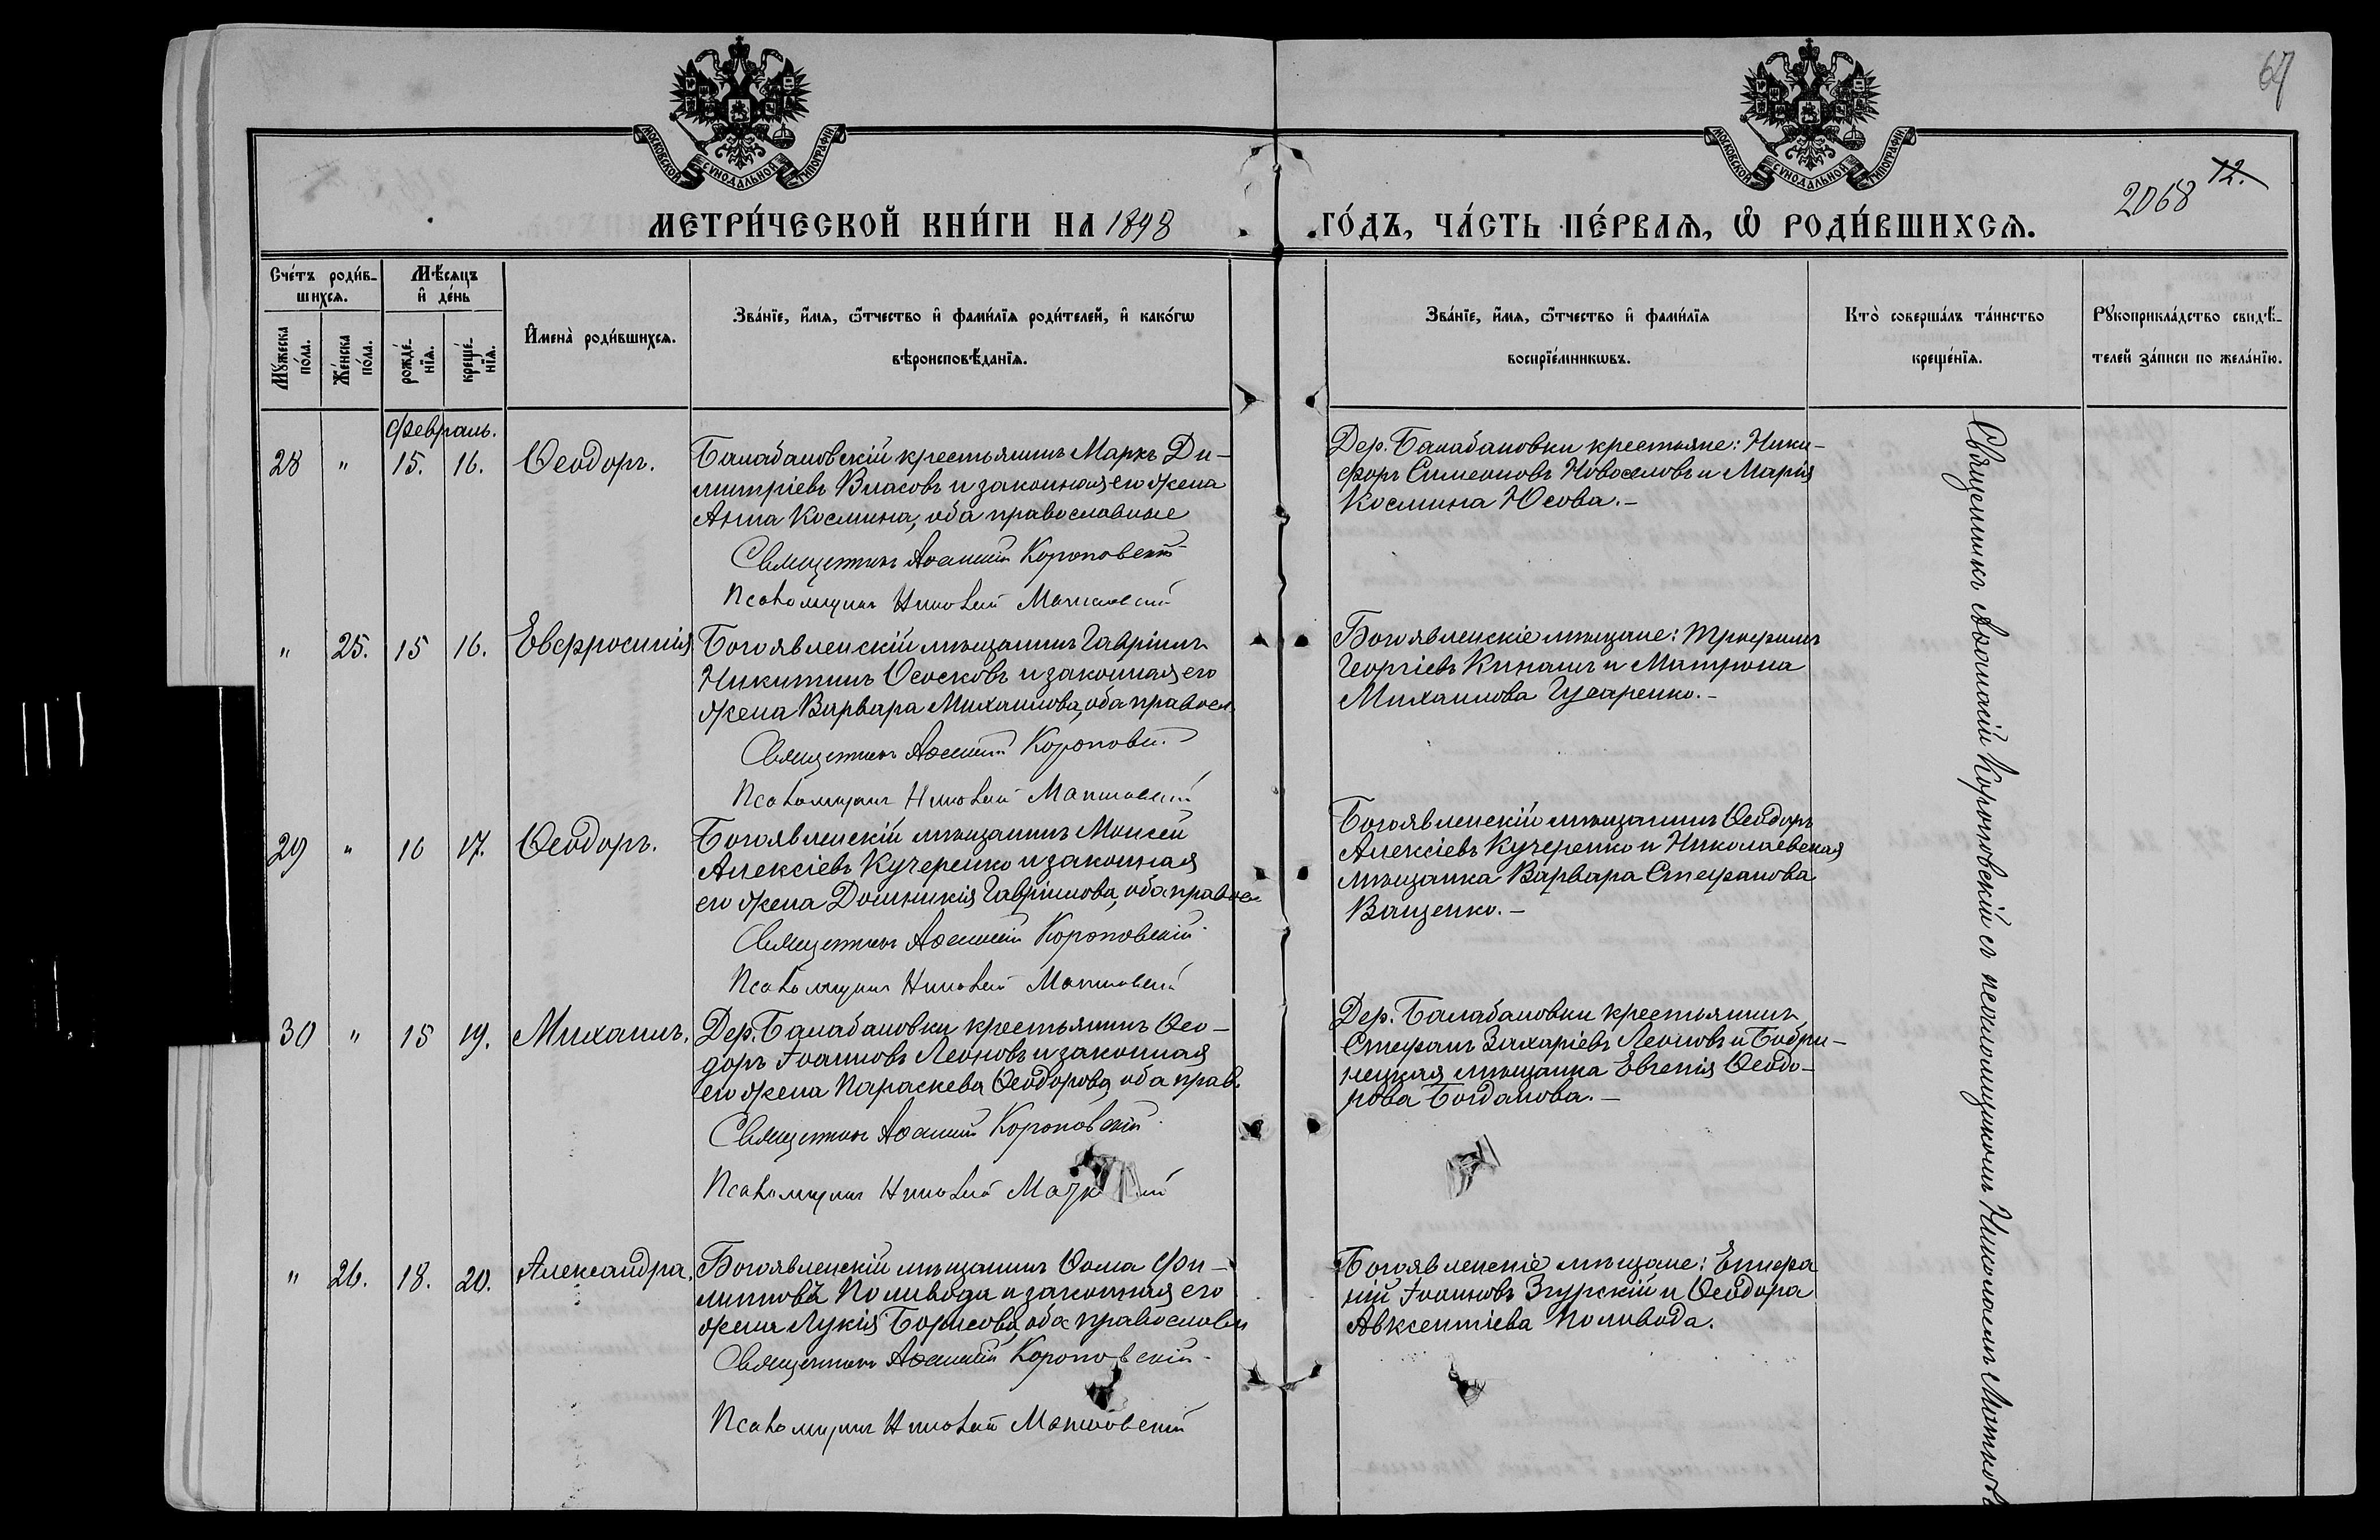 67
МОСКОВСКОЙ СУНОДАЛЬНОЙ ТИПОГРАФІИ
МОСКОВСКОЙ СУНОДАЛЬНОЙ ТИПОГРАФІИ
2068 12.
МЕТРИ́ЧЕСКОЙ КНИ́ГИ НА 1898 ГО́ДЪ, ЧА́СТЬ ПЕ́РВАѦ, Ѡ҆ РОДИ́ВШИХСѦ.
Сче́тъ роди́в-
шихсѧ.
Мѣ́сяцъ
и҆ де́нь
Мꙋ́жеска
по́ла.
Же́нска
по́ла.
рожде́-
нїѧ.
креще́-
нїѧ.
И҆мена̀ роди́вшихсѧ.
Зва́нїе, и҆́мѧ, ѻ҆́тчество и҆ фами́лїѧ роди́телей, и҆ како́гѡ
вѣроисповѣ́данїѧ.
Зва́нїе, и҆́мѧ, ѻ҆́тчество и҆ фами́лїѧ
воспрїе́мникѡвъ.
Кто̀ соверша́лъ та́инство
креще́нїѧ.
Рꙋкоприкла́дство свидѣ́-
телей за́писи по жела́нїю.
Февраль.
28 " 15. 16. Ѳеодоръ.
Балабановскій крестьянинъ Маркъ Ди-
митріевъ Власовъ и законная его жена
Анна Космина, оба православные
Священникъ Аѳанасій Короповскій
Псаломщикъ Николай Матковскій
Дер. Балабановки крестьяне: Ники-
форъ Симеоновъ Новоселовъ и Марія
Космина Юсова.-
" 25. 15 16. Евфросинія
Богоявленскій мѣщанинъ Гавріилъ
Никитинъ Ососковъ и законная его
жена Варвара Михаилова, оба правосл.
Священникъ Аѳанасій Короповскій
Псаломщикъ Николай Матковскій
Богоявленскіе мѣщане: Трифилъ
Георгіевъ Кинашъ и Матрона
Михаилова Гусаренко.-
29 " 16 17. Ѳеодоръ.
Богоявленскій мѣщанинъ Моисей
Алексіевъ Кучеренко и законная
его жена Домникія Гавріилова, оба правосл
Священникъ Аѳанасій Короповскій
Псаломщикъ Николай Матковскій
Богоявленскій мѣщанинъ Ѳеодоръ
Алексіевъ Кучеренко и Николаевская
мѣщанка Варвара Стефанова
Ващенко.-
30 " 15 19. Михаилъ.
Дер. Балабановки крестьянинъ Ѳео-
доръ Іоанновъ Леоновъ и законная
его жена Параскева Ѳеодорова, оба прав.
Священникъ Аѳанасій Короповскій
Псаломщикъ Николай
Дер. Балабановки крестьянинъ
Стефанъ Захаріевъ Леоновъ и Бобри-
нецкая мѣщанка Евгенія Ѳеодо-
рова Богданова.-
" 26. 18. 20. Александра.
Богоявленскій мѣщанинъ Ѳома Фи-
липповъ Поливода и законная его
жена Лукія Борисова, оба православн
Священникъ Аѳанасій Короповскій
Псаломщикъ Николай Матковскій
Богоявленскіе мѣщане: Епифа
ній Іоанновъ Згурскій и Ѳеодора
Авксентіева Поливода.
Священникъ Аѳанасій Короповскій съ псаломщикомъ Николаемъ Матков